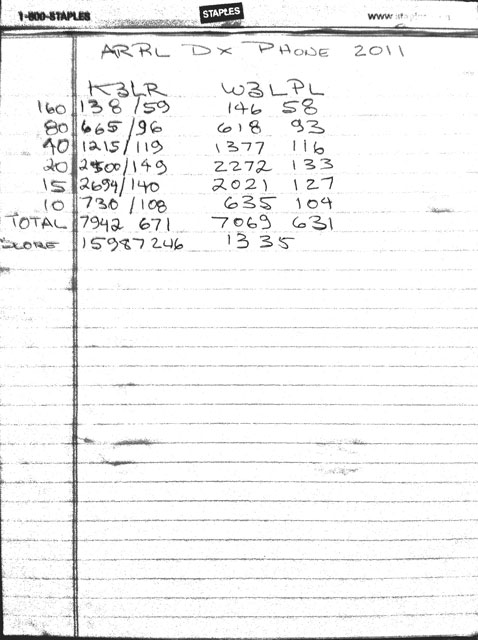 1-800-STAPLES STAPLES www.staples.com
ARRL DX PHONE 2011
K3LR W3LPL
160 138/59 146 58
80 665/96 618 93
40 1215/119 1377 116
20 2500/149 2272 133
15 2694/140 2021 127
10 730/108 635 104
TOTAL 7942 671 7069 631
SCORE 15987246 1335